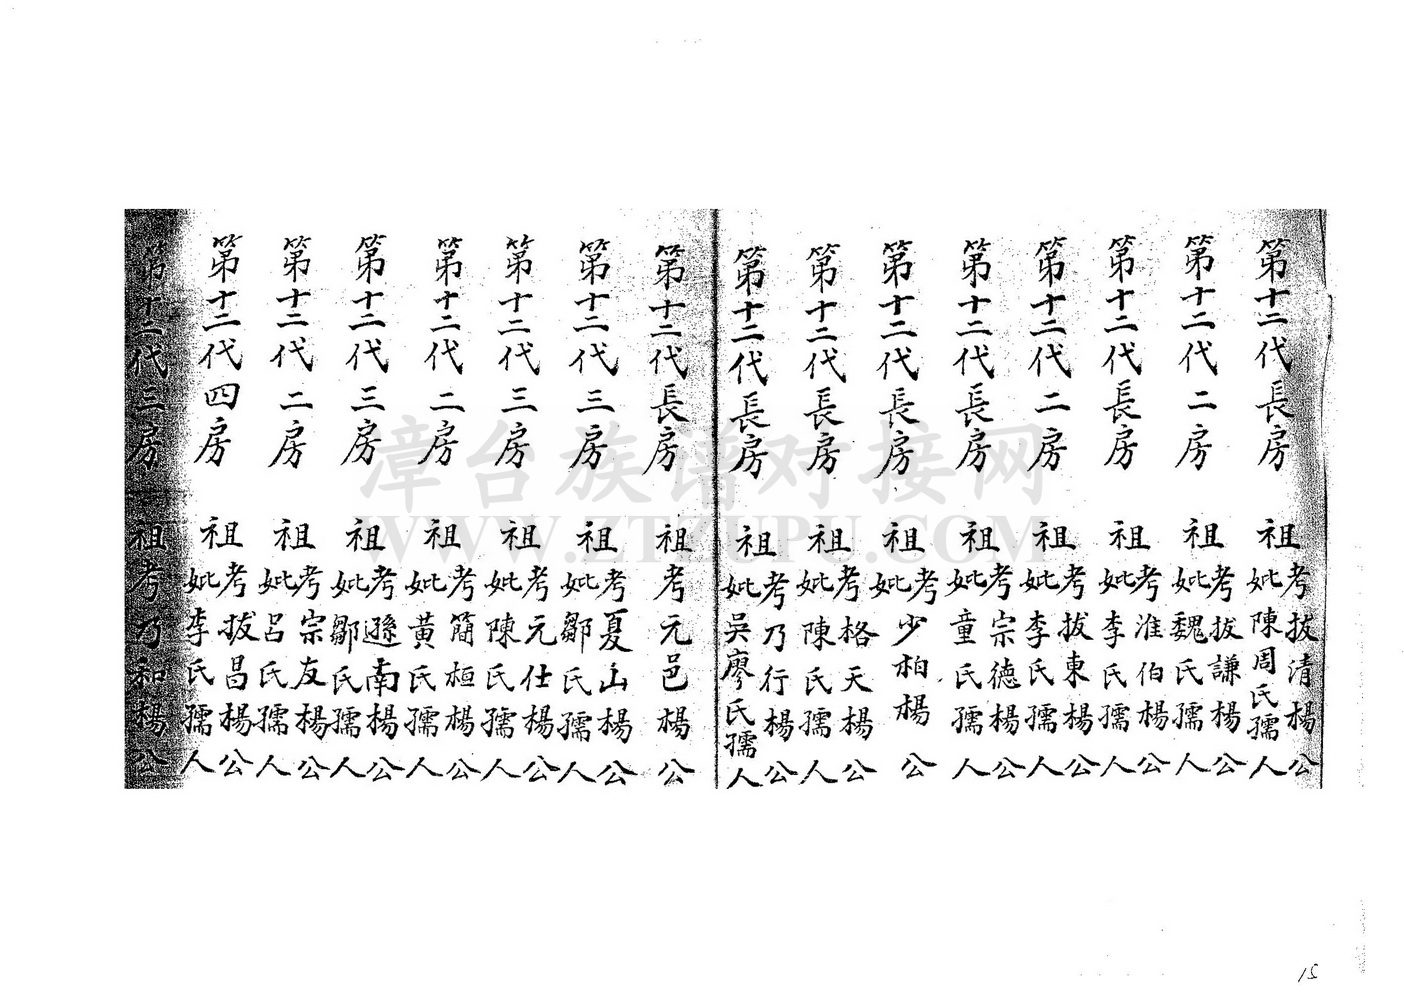 第十二代長房 祖考拔清楊公 妣陳周氏孺人
第十二代二房 祖考拔謙楊公 妣魏氏孺人
第十二代長房 祖考淮伯楊公 妣李氏孺人
第十二代二房 祖考拔東楊公 妣李氏孺人
第十二代長房 祖考宗德楊公 妣童氏孺人
第十二代長房 祖考少柏楊公 妣
第十二代長房 祖考格天楊公 妣陳氏孺人
第十二代長房 祖考乃行楊公 妣吳廖氏孺人
第十二代長房 祖考元邑楊公
第十二代三房 祖考夏山楊公 妣鄒氏孺人
第十二代三房 祖考元仕楊公 妣陳氏孺人
第十二代二房 祖考簡桓楊公 妣黃氏孺人
第十二代三房 祖考遜南楊公 妣鄒氏孺人
第十二代二房 祖考宗友楊公 妣呂氏孺人
第十二代四房 祖考拔昌楊公 妣李氏孺人
第十二代三房 祖考乃和楊公
漳台族谱对接网
WWW.ZTZUPU.COM
15